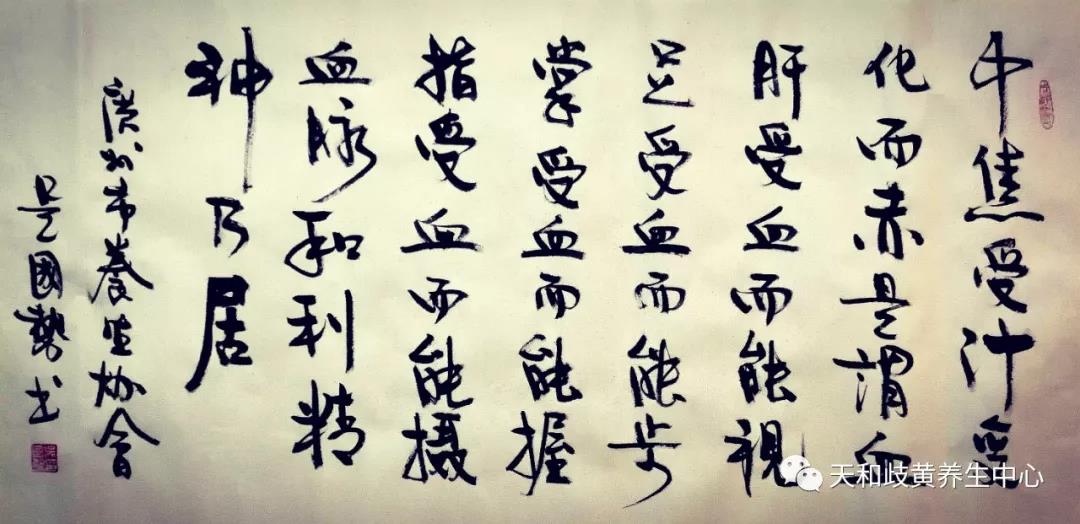 中焦受汁變
化而赤是謂血
肝受血而能視
足受血而能步
掌受血而能握
指受血而能摄
血脉和利精
神乃居
廣州市養生協會
吴國勢书
天和歧黄养生中心